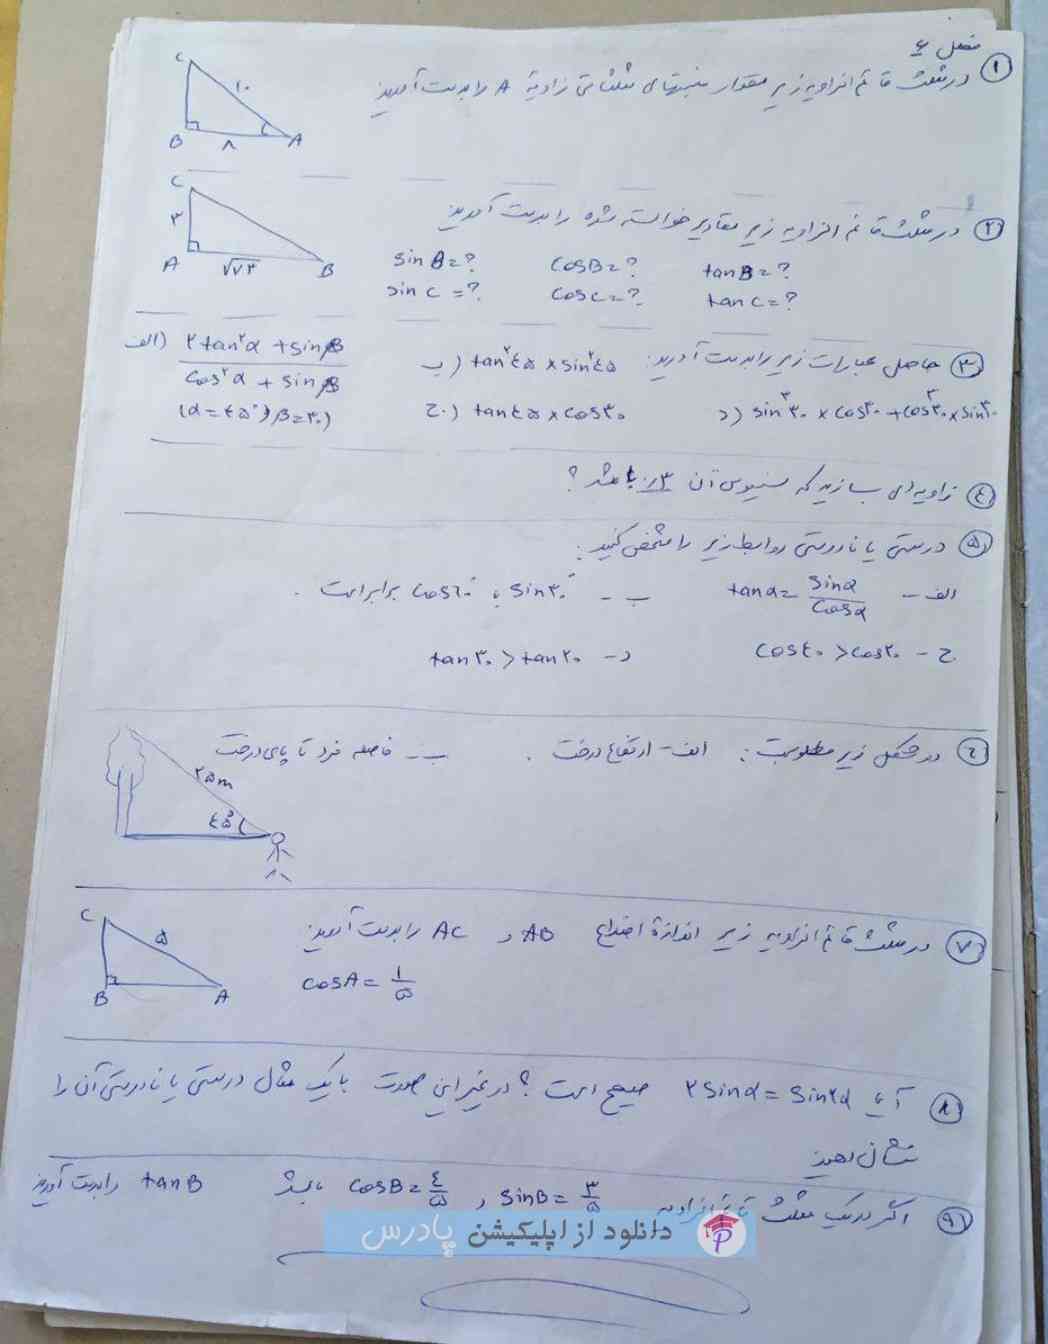 فصل ۶
① در مثلث قائم الزاویه زیر مقدار نسبتهای مثلثاتی زاویهٔ A را بدست آورید
C
۱۰
B ۸ A
② در مثلث قائم الزاویه زیر مقادیر خواسته شده را بدست آورید
C
۳
A √۷۳ B
sin B = ? cos B = ? tan B = ?
sin C = ? cos C = ? tan C = ?
③ حاصل عبارات زیر را بدست آورید:
الف) ۲tan²α + sinβ / cos²α + sinβ
(α = ۴۵°, β = ۳۰)
ب) tan²۴۵ × sin²۴۵
ج) tan۴۵ × cos۳۰
د) sin³۳۰ × cos۳۰ + cos³۳۰ × sin۳۰
④ زاویه‌ای بسازید که سینوس آن ۰/۳ باشد؟
⑤ درستی یا نادرستی روابط زیر را مشخص کنید:
الف - tanα = sinα / cosα ب - sin۳۰° با cos۶۰° برابر است.
ج - cos۴۰ > cos۲۰ د - tan۳۰ > tan۲۰
⑥ در شکل زیر مطلوبست: الف - ارتفاع درخت. ب - فاصله فرد تا پای درخت
۲۵m
۴۵°
⑦ در مثلث قائم الزاویه زیر اندازهٔ اضلاع AB و AC را بدست آورید
cos A = ۱/۵
C
۵
B A
⑧ آیا ۲sinα = sin۲α صحیح است؟ در غیر این صورت با یک مثال درستی یا نادرستی آن را
نشان دهید
⑨ اگر در یک مثلث قائم الزاویه sinB = ۳/۵ , cosB = ۴/۵ باشد tanB را بدست آورید
دانلود از اپلیکیشن پادرس